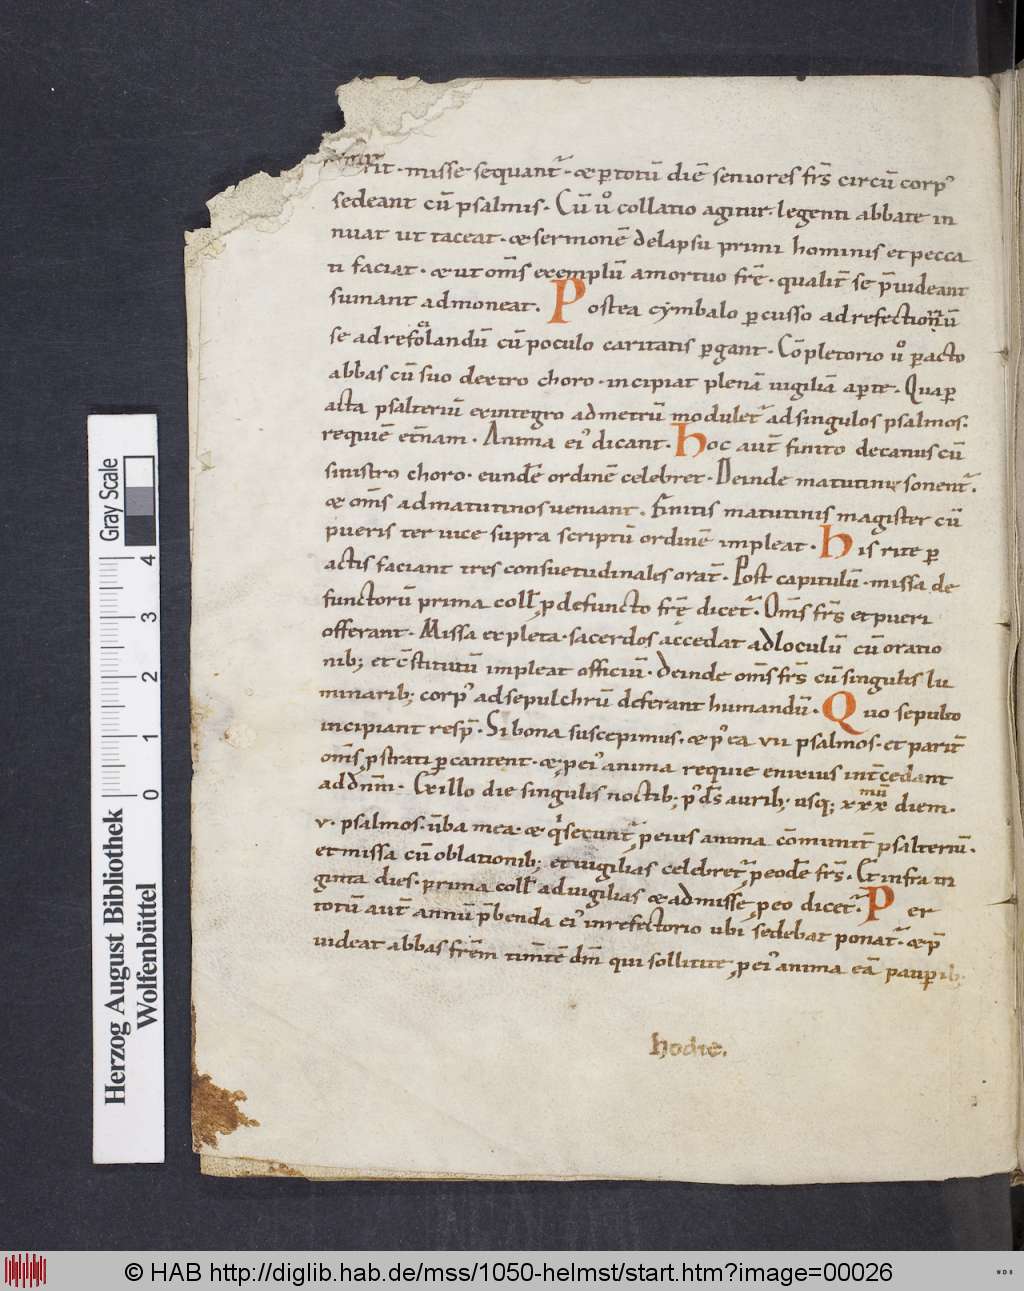 rit · misse sequant᷑ · & ꝑ totū diē seniores fr̄s circū corpꝰ
sedeant cū psalmis · Cū ů collatio agitur · legenti abbate in
nuat ut taceat · & sermonē de lapsu primi hominis et pecca
ti faciat · & ut om̄s exemplū a mortuo fr̄e · qualit̄ se p̄uideant
sumant admoneat · Postea cymbalo ꝑcusso ad refectionū
se ad refo͑landū cū poculo caritatis ꝑgant · Cōpletorio ů ꝑacto
abbas cū suo dextro choro · incipiat plenā uigiliā aꝑte · Qua ꝑ
acta psalteriū ex integro ad metrū modulet᷑ ad singulos psalmos ·
requiē et̄nam · Anima eiꝰ dicant · Hoc aut̄ finito decanus cū
sinistro choro · eundē ordinē celebret · Deinde matutine sonent᷑ ·
& om̄s ad matutinos ueniant · Finitis matutinis magister cū
pueris ter uice supra scriptū ordinē impleat · His rite ꝑ
actis faciant tres consuetudinales orat̄ · Post capitulū · missa de
functorū prima coll̄ ꝓ defuncto fr̄e dicet᷑ · Om̄s fr̄s et pueri
offerant · Missa expleta · sacerdos accedat ad loculū cū oratio
nib; et c̄stitutū impleat officiū · deinde om̄s fr̄s cū singulis lu
minarib; corpꝰ ad sepulchrū deferant humandū · Quo sepulto
incipiant resp̄ · Si bona suscepimus · & pꝰea vii psalmos · et parit̄
om̄s ꝓstrati ꝑcantent · & ꝓ eiꝰ anima requie enixius int̄cedant
ad dn̄m · Ex illo die singulis noctib; pꝰ ds̄ aurib; usq; xxx mū diem ·
v · psalmos · ūba mea · & q̇ secunt᷑ ꝓ eius anima cōmunit̄ psalteriū ·
et missa cū oblationib; et uigilias celebret᷑ ꝓ eodē fr̄s · Et infra tri
ginta dies · prima coll̄ ad uigilias & ad misse ꝓ eo dicet᷑ · Per
totū aut̄ annū p̄benda eiꝰ in refectorio ubi sedebat ponat᷑ · & p̄
uideat abbas fr̄em tim̄tē dm̄ qui sollicite ꝓ eiꝰ anima eā pauꝑib;
hodie.
Gray Scale
0 1 2 3 4
Herzog August Bibliothek
Wolfenbüttel
© HAB http://diglib.hab.de/mss/1050-helmst/start.htm?image=00026